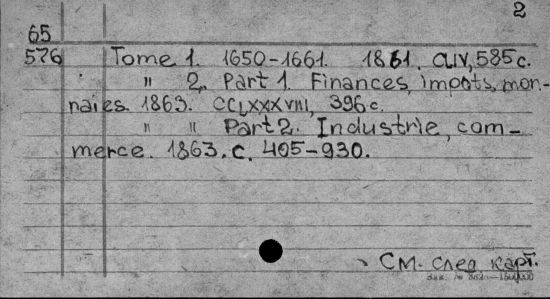 2
65
576
Tome 1. 1650-1661. 1861. CLIV, 585 с.
" 2, Part 1. Finances, impots, mon-
naies. 1863. CCLXXXVIII, 396 с.
" " Part 2. Industrie, com-
merce. 1863. с. 405-930.
См. след карт.